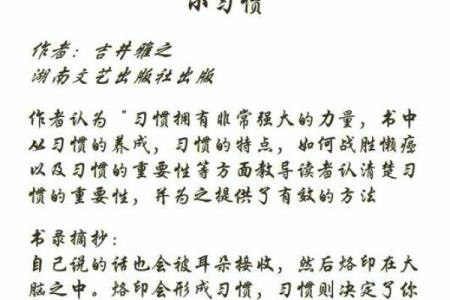 小习惯
作者：吉井雅之
湖南文艺出版社出版
作者认为“习惯拥有非常强大的力量，书中
从习惯的养成，习惯的特点，如何战胜懒癌
以及习惯的重要性等方面教导读者认清楚习
惯的重要性，并为之提供了有效的方法
书录摘抄：
自己说的话也会被耳朵接收，然后烙印在大
脑之中。烙印会形成习惯，习惯则决定了你